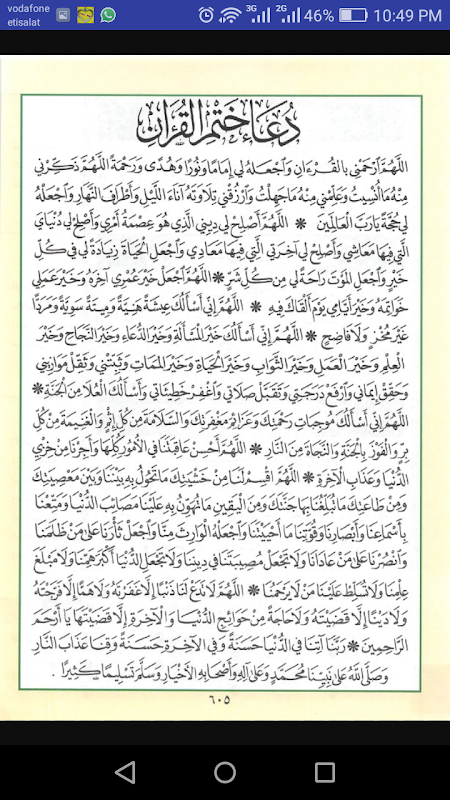 vodafone
etisalat
3G
2G
46%
10:49 PM
دُعَاءُ خَتْمِ القُرْآنِ
اللَّهُمَّ ارْحَمْنِي بِالقُرْءَانِ وَاجْعَلْهُ لِي إِمَامًا وَنُورًا وَهُدًى وَرَحْمَةً اللَّهُمَّ ذَكِّرْنِي
مِنْهُ مَا أُنْسِيتُ وَعَلِّمْنِي مِنْهُ مَا جَهِلْتُ وَارْزُقْنِي تِلَاوَتَهُ آنَاءَ اللَّيْلِ وَأَطْرَافَ النَّهَارِ وَاجْعَلْهُ
لِي حُجَّةً يَارَبَّ العَالَمِينَ ❊ اللَّهُمَّ أَصْلِحْ لِي دِينِي الَّذِي هُوَ عِصْمَةُ أَمْرِي وَأَصْلِحْ لِي دُنْيَايَ
الَّتِي فِيهَا مَعَاشِي وَأَصْلِحْ لِي آخِرَتِي الَّتِي فِيهَا مَعَادِي وَاجْعَلِ الحَيَاةَ زِيَادَةً لِي فِي كُلِّ
خَيْرٍ وَاجْعَلِ المَوْتَ رَاحَةً لِي مِنْ كُلِّ شَرٍّ ❊ اللَّهُمَّ اجْعَلْ خَيْرَ عُمْرِي آخِرَهُ وَخَيْرَ عَمَلِي
خَوَاتِمَهُ وَخَيْرَ أَيَّامِي يَوْمَ أَلْقَاكَ فِيهِ ❊ اللَّهُمَّ إِنِّي أَسْأَلُكَ عِيشَةً هَنِيَّةً وَمِيتَةً سَوِيَّةً وَمَرَدًّا
غَيْرَ مُخْزٍ وَلَا فَاضِحٍ ❊ اللَّهُمَّ إِنِّي أَسْأَلُكَ خَيْرَ المَسْأَلَةِ وَخَيْرَ الدُّعَاءِ وَخَيْرَ النَّجَاحِ وَخَيْرَ
العِلْمِ وَخَيْرَ العَمَلِ وَخَيْرَ الثَّوَابِ وَخَيْرَ الحَيَاةِ وَخَيْرَ المَمَاتِ وَثَبِّتْنِي وَثَقِّلْ مَوَازِينِي
وَحَقِّقْ إِيمَانِي وَارْفَعْ دَرَجَتِي وَتَقَبَّلْ صَلَاتِي وَاغْفِرْ خَطِيئَاتِي وَأَسْأَلُكَ العُلَا مِنَ الجَنَّةِ ❊
اللَّهُمَّ إِنِّي أَسْأَلُكَ مُوجِبَاتِ رَحْمَتِكَ وَعَزَائِمَ مَغْفِرَتِكَ وَالسَّلَامَةَ مِنْ كُلِّ إِثْمٍ وَالغَنِيمَةَ مِنْ كُلِّ
بِرٍّ وَالفَوْزَ بِالجَنَّةِ وَالنَّجَاةَ مِنَ النَّارِ ❊ اللَّهُمَّ أَحْسِنْ عَاقِبَتَنَا فِي الأُمُورِ كُلِّهَا وَأَجِرْنَا مِنْ خِزْيِ
الدُّنْيَا وَعَذَابِ الآخِرَةِ ❊ اللَّهُمَّ اقْسِمْ لَنَا مِنْ خَشْيَتِكَ مَا تَحُولُ بِهِ بَيْنَنَا وَبَيْنَ مَعْصِيَتِكَ
وَمِنْ طَاعَتِكَ مَا تُبَلِّغُنَا بِهَا جَنَّتَكَ وَمِنَ اليَقِينِ مَا تُهَوِّنُ بِهِ عَلَيْنَا مَصَائِبَ الدُّنْيَا وَمَتِّعْنَا
بِأَسْمَاعِنَا وَأَبْصَارِنَا وَقُوَّتِنَا مَا أَحْيَيْتَنَا وَاجْعَلْهُ الوَارِثَ مِنَّا وَاجْعَلْ ثَأْرَنَا عَلَى مَنْ ظَلَمَنَا
وَانْصُرْنَا عَلَى مَنْ عَادَانَا وَلَا تَجْعَلْ مُصِيبَتَنَا فِي دِينِنَا وَلَا تَجْعَلِ الدُّنْيَا أَكْبَرَ هَمِّنَا وَلَا مَبْلَغَ
عِلْمِنَا وَلَا تُسَلِّطْ عَلَيْنَا مَنْ لَا يَرْحَمُنَا ❊ اللَّهُمَّ لَا تَدَعْ لَنَا ذَنْبًا إِلَّا غَفَرْتَهُ وَلَا هَمًّا إِلَّا فَرَّجْتَهُ
وَلَا دَيْنًا إِلَّا قَضَيْتَهُ وَلَا حَاجَةً مِنْ حَوَائِجِ الدُّنْيَا وَالآخِرَةِ إِلَّا قَضَيْتَهَا يَا أَرْحَمَ
الرَّاحِمِينَ ❊ رَبَّنَا آتِنَا فِي الدُّنْيَا حَسَنَةً وَفِي الآخِرَةِ حَسَنَةً وَقِنَا عَذَابَ النَّارِ
وَصَلَّى اللَّهُ عَلَى نَبِيِّنَا مُحَمَّدٍ وَعَلَى آلِهِ وَأَصْحَابِهِ الأَخْيَارِ وَسَلَّمَ تَسْلِيمًا كَثِيرًا .
٦٠٥